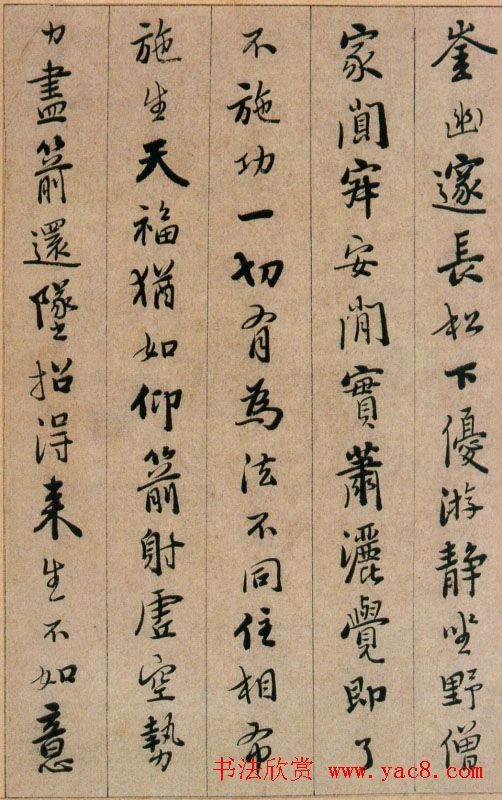 崟幽邃長松下優游静坐野僧
家闃寂安閑實蕭灑覺即了
不施功一切有為法不同住相布
施生天福猶如仰箭射虛空勢
力盡箭還墜招得来生不如意
书法欣赏 www.yac8.com